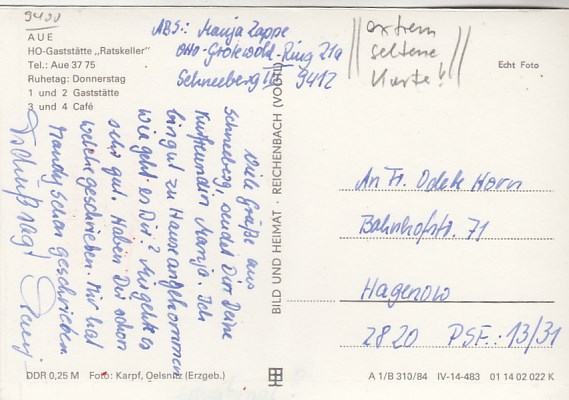 9400
AUE
HO-Gaststätte „Ratskeller"
Tel.: Aue 37 75
Ruhetag: Donnerstag
1 und 2 Gaststätte
3 und 4 Café
ABS: Manja Zappe
Otto-Grotewold-Ring 21a
Schneeberg III 9412
extrem
seltene
Karte!
Echt Foto
Viele Grüße aus
Schneeberg, sendet Dir Deine
Kurfreundin Manja. Ich
bin gut zu Hause angekommen
Wie geht es Dir? Mir geht es
sehr gut. Haben Dir schon
welche geschrieben. Mir hat
Mandy schon geschrieben
Tschüß sagt
BILD UND HEIMAT · REICHENBACH (VOGTL)
An Fr. Odete Horn
Bahnhofstr. 71
Hagenow
2820 PSF.: 13/31
DDR 0,25 M Foto: Karpf, Oelsnitz (Erzgeb.)
A 1/B 310/84 IV-14-483 01 14 02 022 K